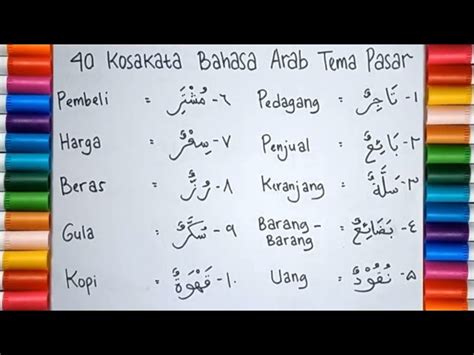 40 Kosakata Bahasa Arab Tema Pasar
Pembeli = ٦- مُشْتَرٍ Pedagang = ١- تَاجِرٌ
Harga = ٧- سِعْرٌ Penjual = ٢- بَائِعٌ
Beras = ٨- رُزٌّ Keranjang = ٣- سَلَّةٌ
Gula = ٩- سُكَّرٌ Barang-Barang = ٤- بَضَائِعُ
Kopi = ١٠- قَهْوَةٌ Uang = ٥- نُقُوْدٌ